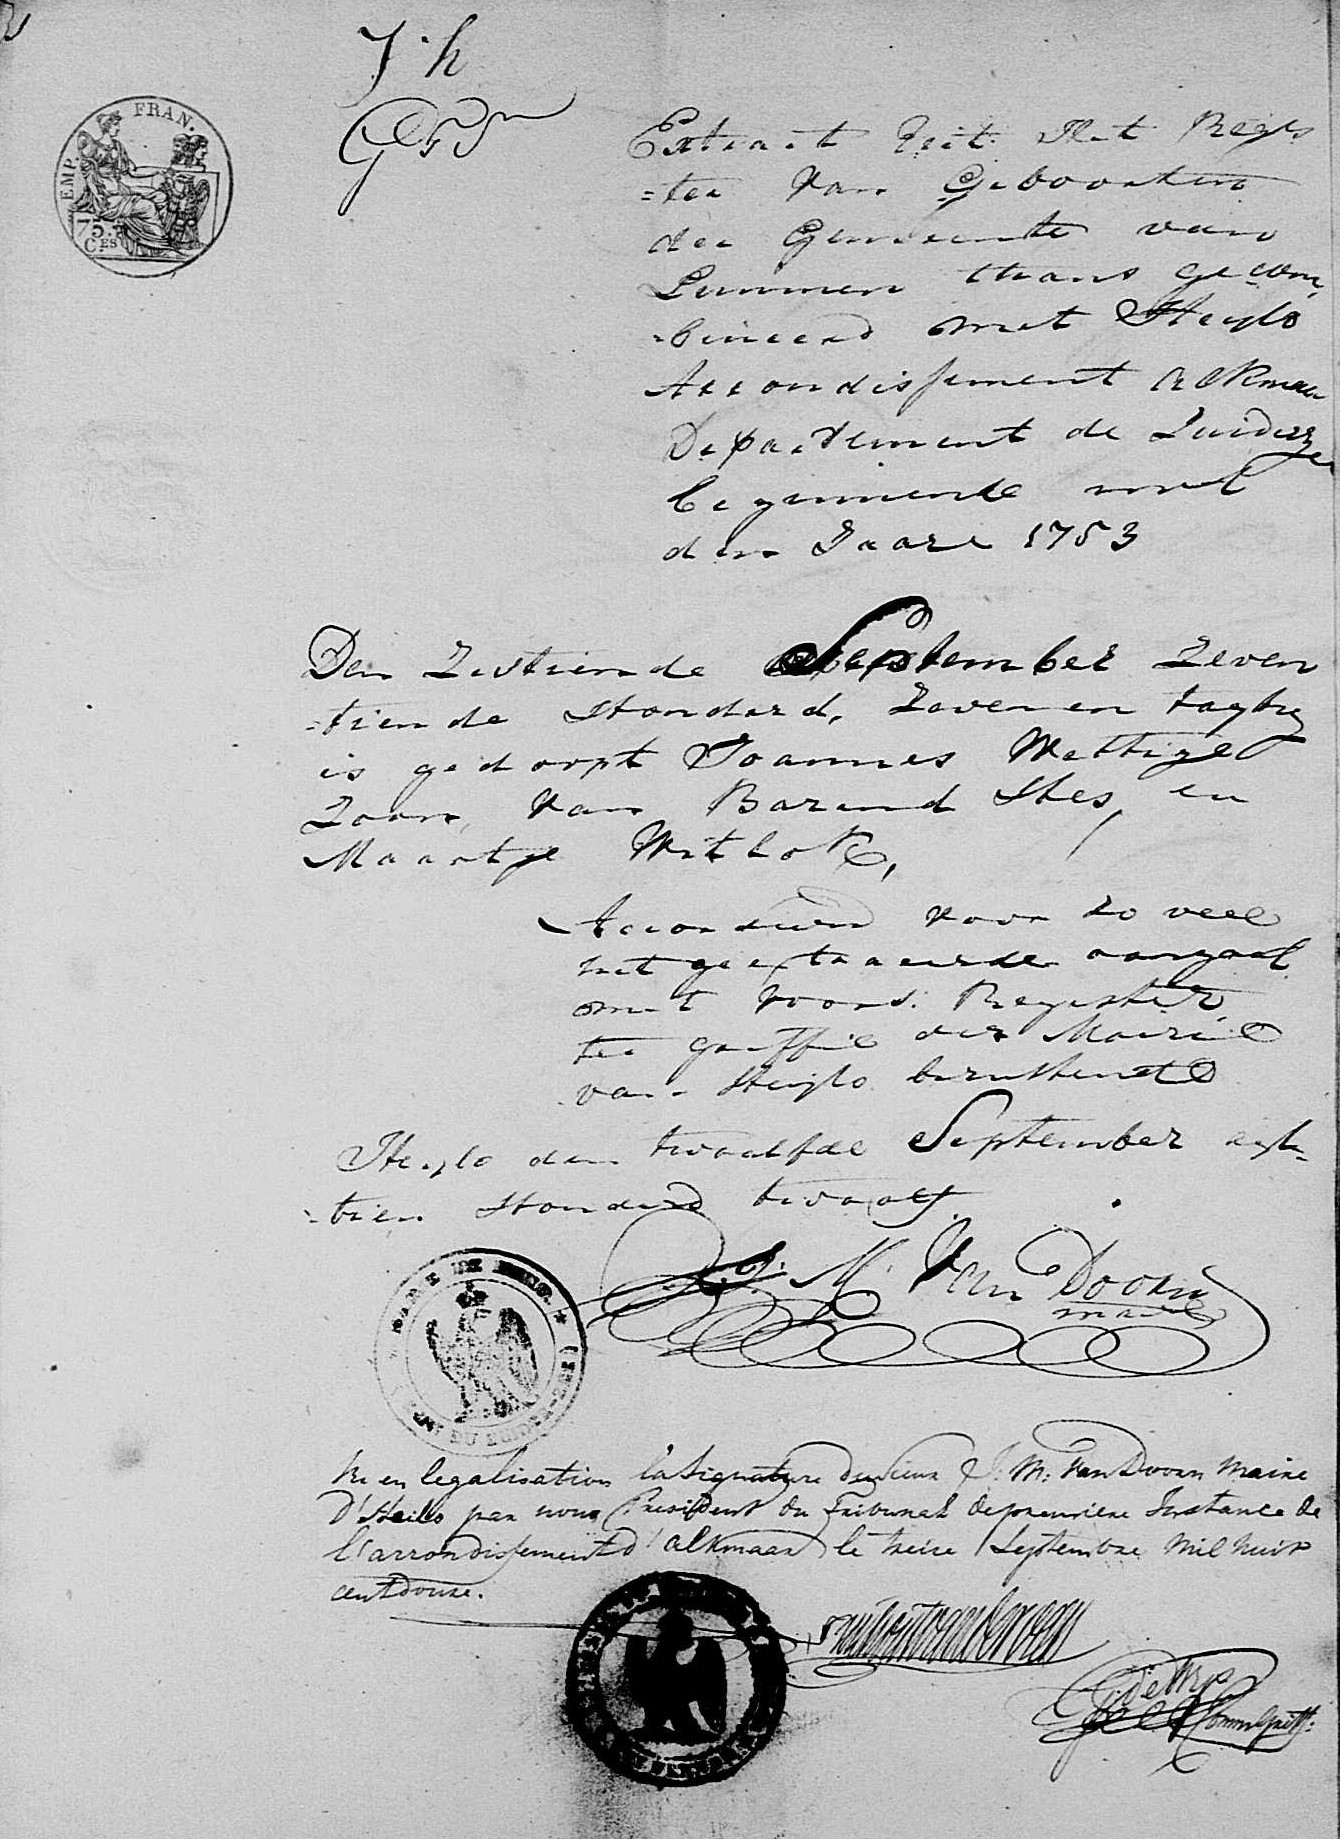 J. h
EMP. FRAN.
75.
CES
Extract Uit Het Regis
=ter Van Geboorten
der Gemeente van
Limmen thans gecom,
=bineerd met Heylo
Arrondissement Alkmaar
Departement de Zuiderzee
beginnende met
den Jaare 1753
Den Zestiende September Zeven
=tiende Honderd, Zeven en
is gedoopt Joannes
Zoon, van Barend Stes, en
Maartje Witlok,
Accorderend voor zo veel
het geextraheerde aangaat
met voors: Register
ter griffie der Mairie
van Heylo berustende
Heylo den twaalfde September agt-
=tien Honderd twaalf.
J. M. Van Doorn
maire
Vu en legalisation la Signature du Sieur J: M: Van Doorn Maire
d'Heilo par nous President du Tribunal de premiere Instance de
l'arrondissement d'alkmaar le treize Septembre Mil huit
cent douze.